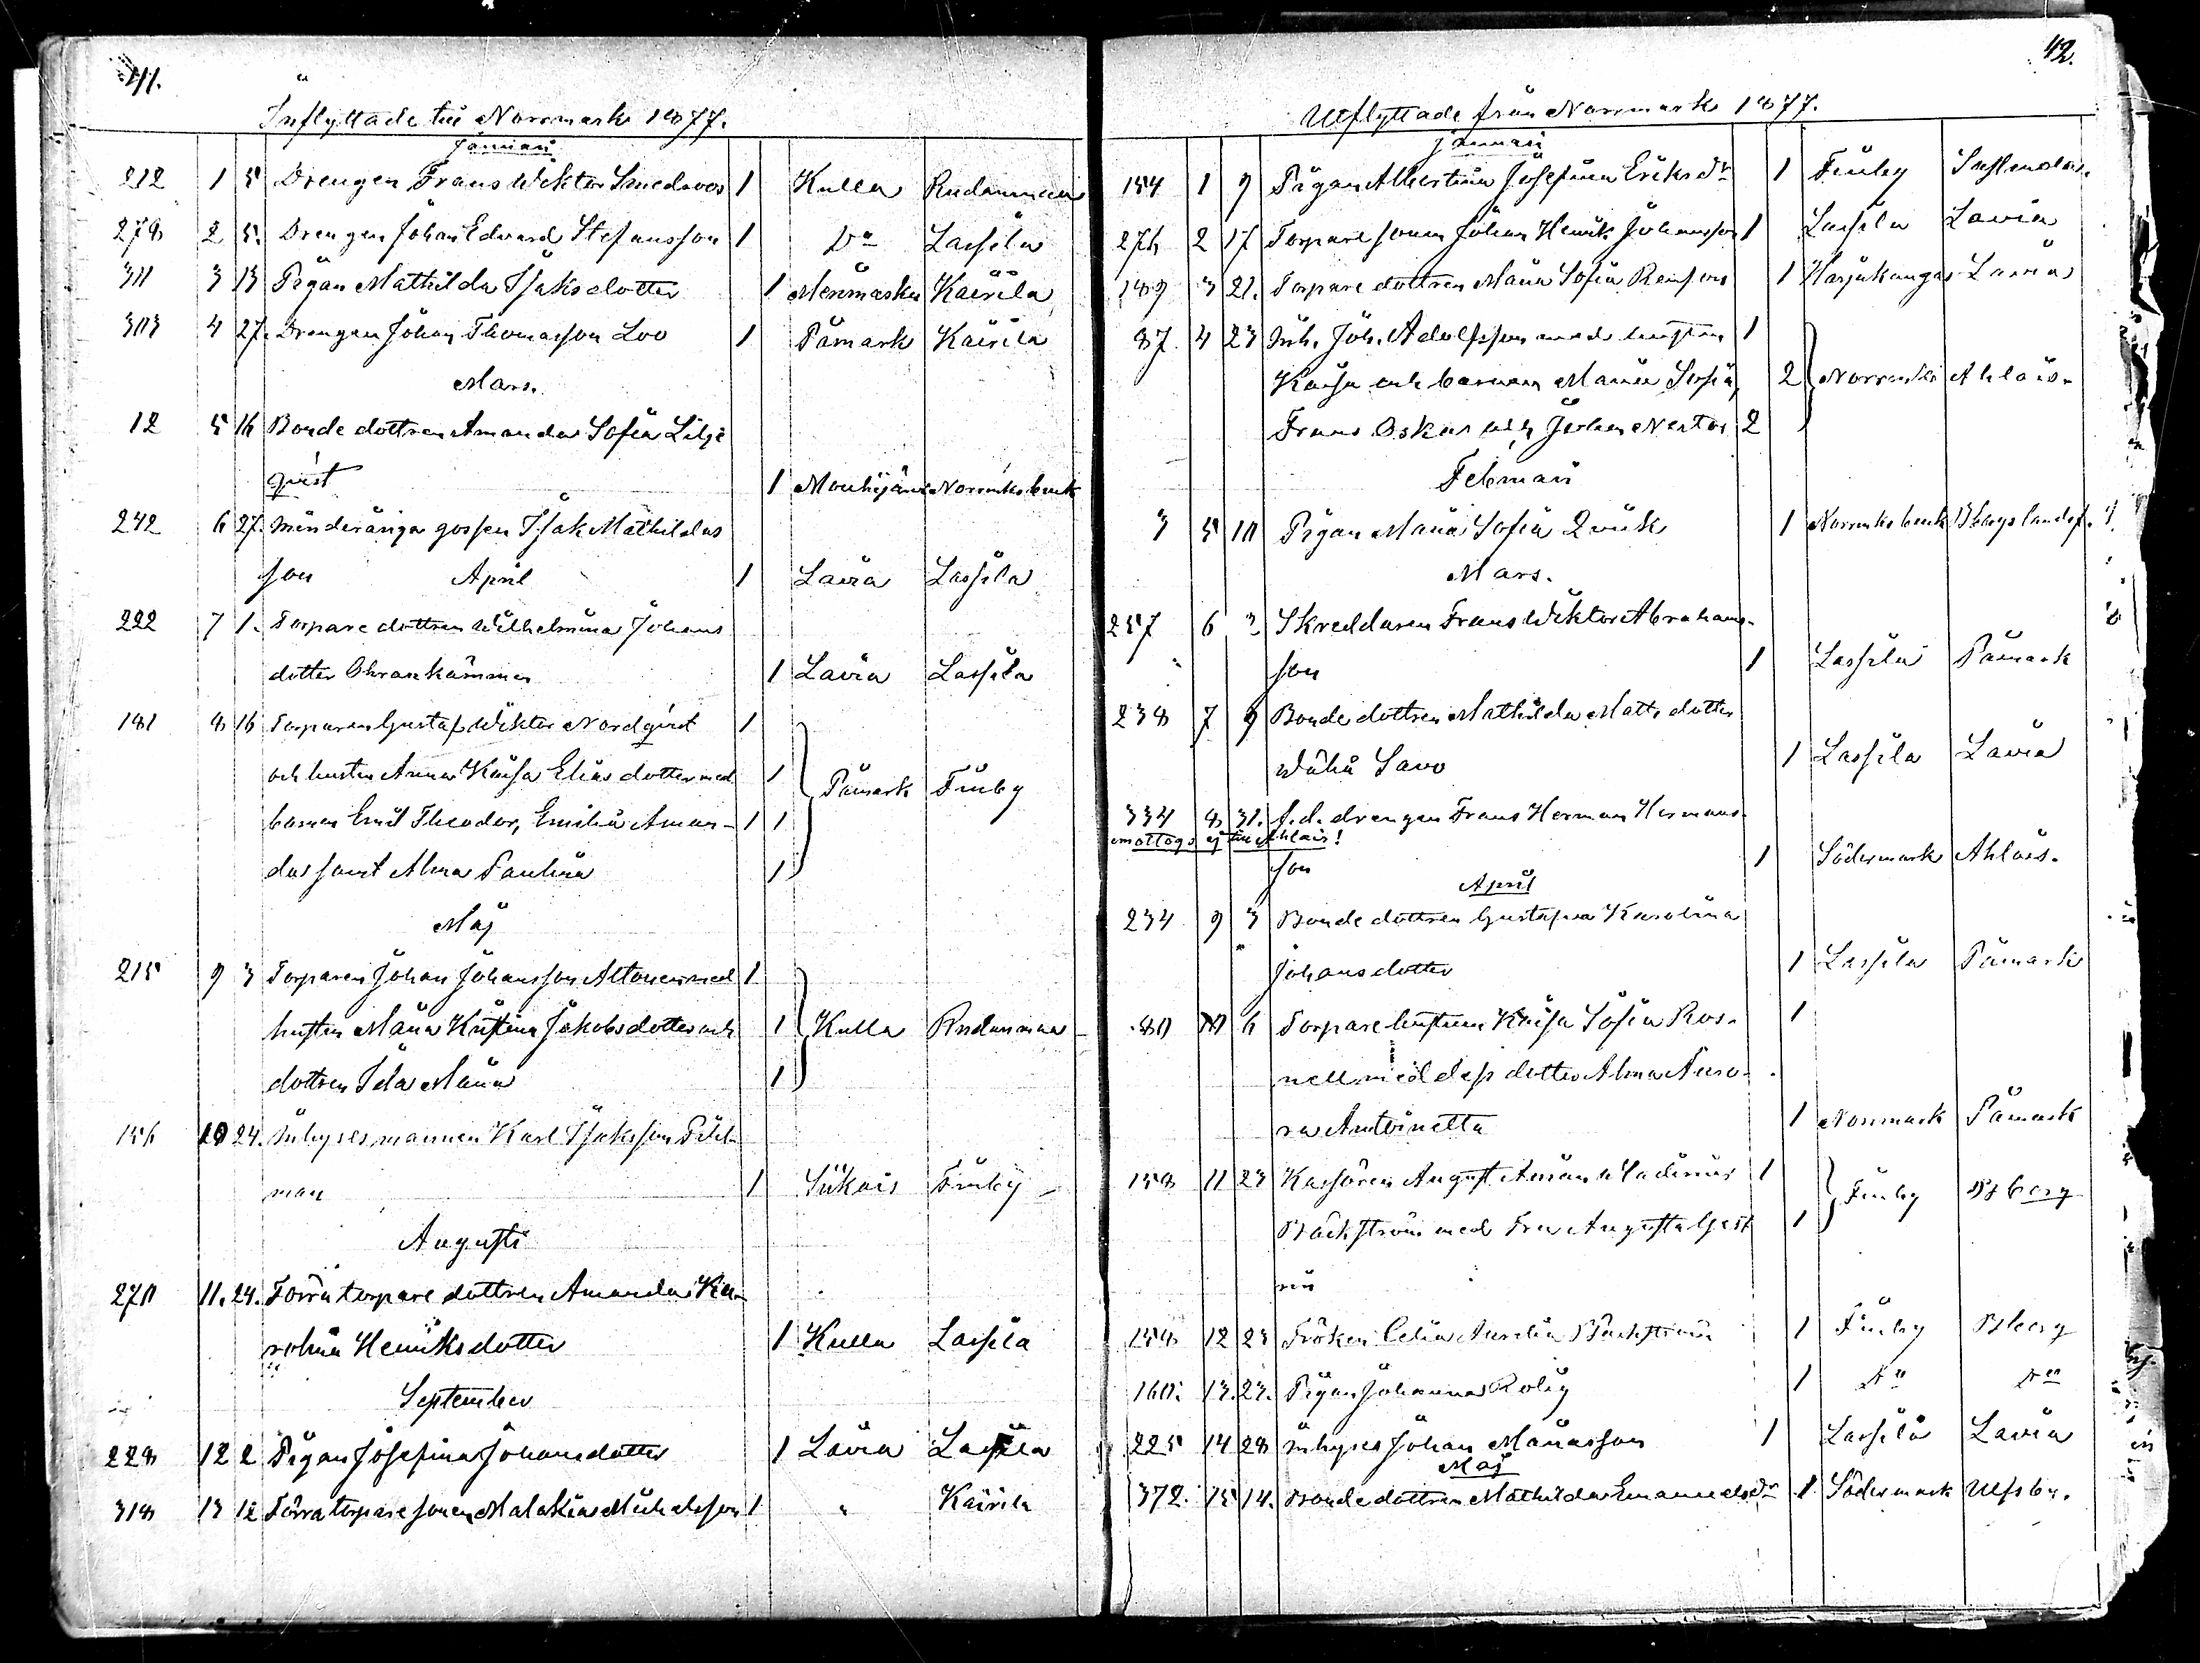 41.
Inflyttade till Norrmark 1877.
Januari
212 1 5 Drengen Frans Wiktor Smedsroos 1 Kulla Rudanmaa
278 2 5. Drengen Johan Edvard Stefansson 1 Do Lassila
311 3 13 Pigan Mathilda Isaksdotter 1 Merimasku Kairila
303 4 27. Drengen Johan Thomasson Loo 1 Påmark Kairila
Mars.
12 5 16 Bonde dottren Amanda Sofia Lilje
qvist 1 Mouhijärvi Norrmks bruk
242 6 27. Minderåriga gossen Isak Mathildas
son 1 Lavia Lassila
April
222 7 1. Torpare dottren Wilhelmina Johans
dotter 1 Lavia Lassila
181 8 16 Torparen Gustaf Wiktor Nordqvist 1
och hustru Anna Kaisa Elias dotter med 1 Påmark Finby
barnen Emil Theodor, Emilia Aman- 1 1
da samt Alma Paulina 1
Maj
215 9 3 Torparen Johan Johansson Altonen med 1
hustru Maria Kristina Jakobsdotter och 1 Kulla Rudanmaa
dottren Ida Maria 1
156 10 24. Inhyses mannen Karl Isaksson Pihl-
man 1 Siikais Finby
Augusti
270 11. 24. Förra torpare dottren Amanda Ka-
rolina Henriksdotter 1 Kulla Lassila
September
228 12 2 Pigan Josefina Johansdotter 1 Lavia Lassila
318 13 12 Förra torpare sonen Malakias Michelsson 1 " Kairila
42.
Utflyttade från Norrmark 1877.
Januari
154 1 9 Pigan Albertina Josefina Eriksdr 1 Finby
276 2 17 Torpare sonen Johan Henrik Johansson 1 Lassila Lavia
189 3 21. Torpare dottren Maria Sofia 1 Harjakangas Lavia
87. 4 23 Inh. Joh. Adolfsson med hustru 1
Kaisa och barnen Maria Sofia, 2 Norrmks Ahlais.
Frans Oskar och Johan Nestor 2
Februari
3 5 10 Pigan Maria Sofia Qvick 1 Norrmks bruk Bbergs landsf.
Mars.
257 6 2 Skreddaren Frans Wiktor Abrahams-
son 1 Lassila Påmark
238 7 9 Bonde dottren Mathilda Matts dotter
Wähä Savo 1 Lassila Lavia
334 8 31. f.d. drengen Frans Herman Hermans-
emottogs ej till Ahlais!
son 1 Södermark Ahlais.
April
234 9 3 Bonde dottren Gustafva Karolina
Johansdotter 1 Lassila Påmark
80 10 6 Torpare hustrun Kaisa Sofia Ros- 1
nell med dess dotter Alma Auro-
ra Antoinetta 1 Norrmark Påmark
158 11 23 Kassören August Amian Wladimir 1
Bäckström med Fru Augusta Gest 1 Finby Bjberg
rin
158 12 23 Fröken Celia Aurelia Bäckström 1 Finby Bberg
160. 13. 23. Pigan Johanna Rolig 1 Do Do
225 14 28 Inhyses Johan Manasson 1 Lassila Lavia
Maj
372. 15 14. Bonde dottren Mathilda Emanuelsdr 1 Södermark Ulfsby.